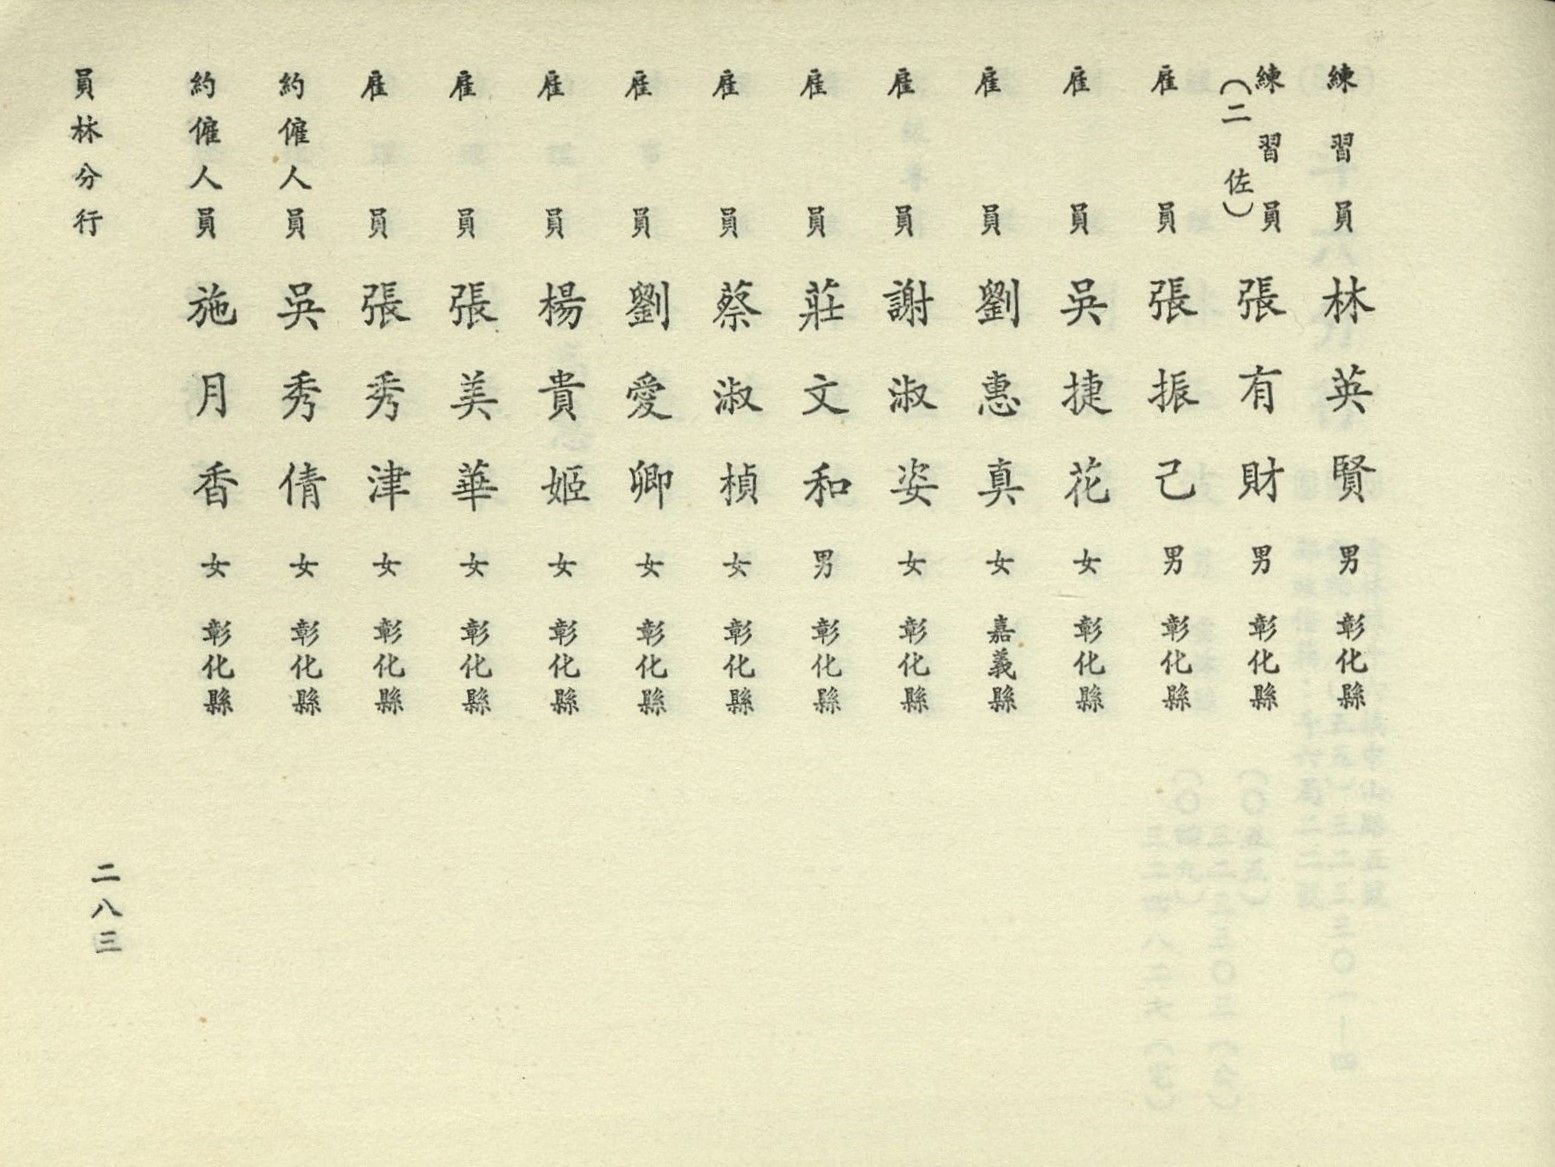 練習員 林英賢 男 彰化縣
練習員(二佐) 張有財 男 彰化縣
雇員 張振己 男 彰化縣
雇員 吳捷花 女 彰化縣
雇員 劉惠真 女 嘉義縣
雇員 謝淑姿 女 彰化縣
雇員 莊文和 男 彰化縣
雇員 蔡淑楨 女 彰化縣
雇員 劉愛卿 女 彰化縣
雇員 楊貴姬 女 彰化縣
雇員 張美華 女 彰化縣
雇員 張秀津 女 彰化縣
約僱人員 吳秀倩 女 彰化縣
約僱人員 施月香 女 彰化縣
員林分行
二八三